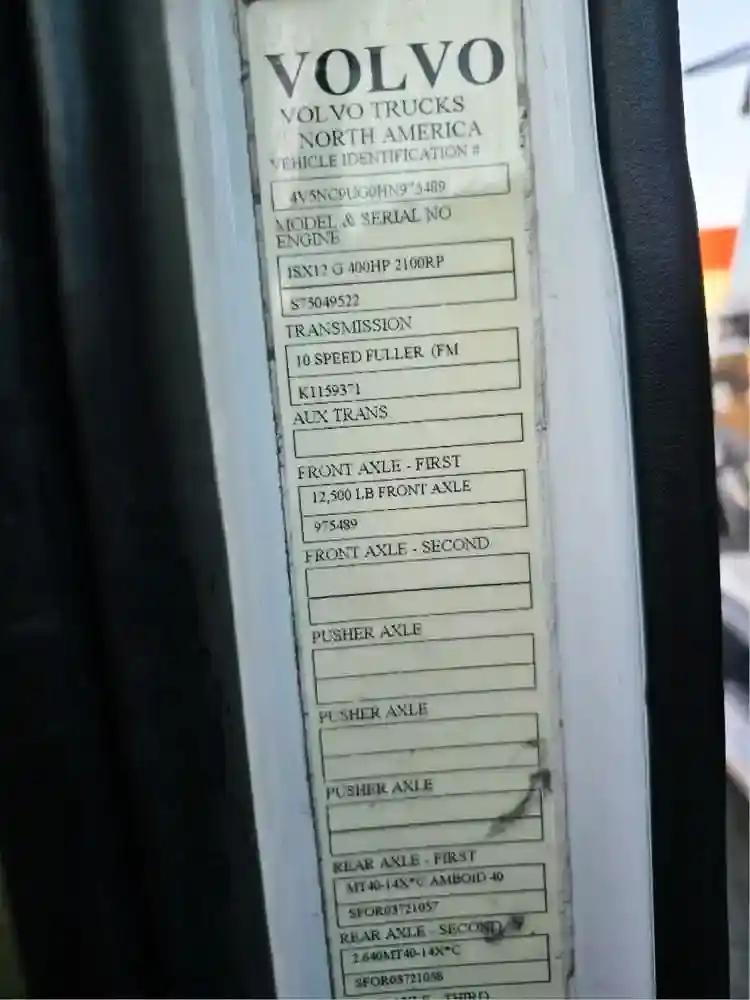 VOLVO
VOLVO TRUCKS
NORTH AMERICA
VEHICLE IDENTIFICATION #
MODEL & SERIAL NO
ENGINE
ISX12 G 400HP 2100RP
S75049522
TRANSMISSION
10 SPEED FULLER (FM
K1159371
AUX TRANS
FRONT AXLE - FIRST
12,500 LB FRONT AXLE
975489
FRONT AXLE - SECOND
PUSHER AXLE
PUSHER AXLE
PUSHER AXLE
REAR AXLE - FIRST
MT40-14X*C AMBOID 40
SFOR03721057
REAR AXLE - SECOND
2.640MT40-14X*C
SFOR03721058
THIRD